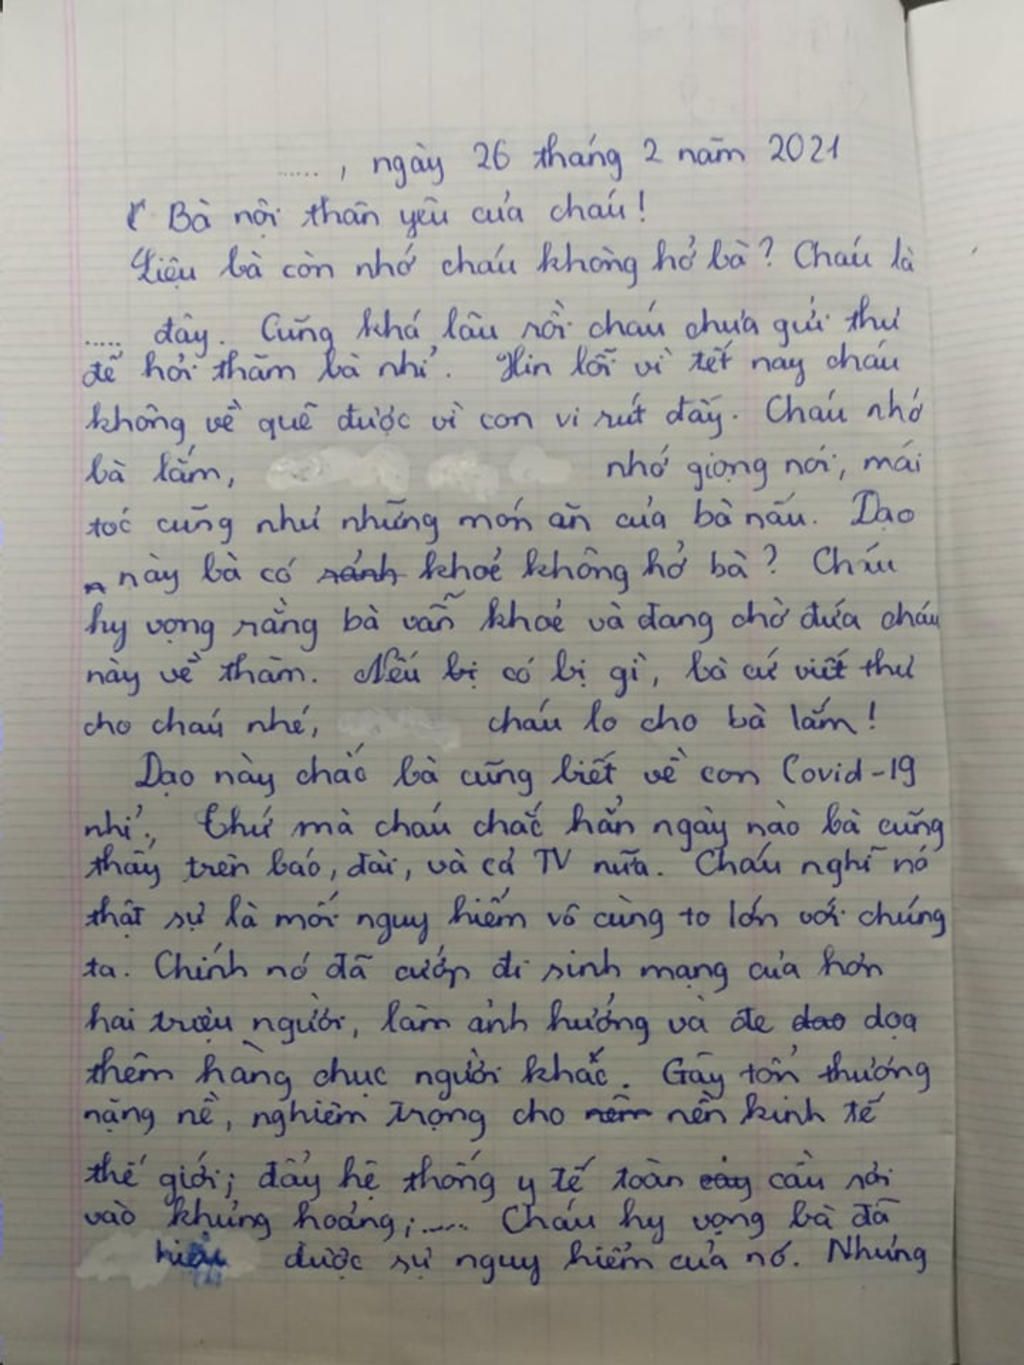 ....., ngày 26 tháng 2 năm 2021
( Bà nội thân yêu của cháu!
Liệu bà còn nhớ cháu không hở bà? Cháu là
..... đây. Cũng khá lâu rồi cháu chưa gửi thư
để hỏi thăm bà nhỉ. Xin lỗi vì tết nay cháu
không về quê được vì con vi rút đấy. Cháu nhớ
bà lắm, nhớ giọng nói, mái
tóc cũng như những món ăn của bà nấu. Dạo
này bà có sánh khoẻ không hở bà? Cháu
hy vọng rằng bà vẫn khoẻ và đang chờ đứa cháu
này về thăm. Nếu bị có bị gì, bà cứ viết thư
cho cháu nhé, cháu lo cho bà lắm!
Dạo này chắc bà cũng biết về con Covid-19
nhỉ, thứ mà cháu chắc hẳn ngày nào bà cũng
thấy trên báo, đài, và cả TV nữa. Cháu nghĩ nó
thật sự là mối nguy hiểm vô cùng to lớn với chúng
ta. Chính nó đã cướp đi sinh mạng của hơn
hai triệu người, làm ảnh hưởng và đe dao doạ
thêm hàng chục người khác. Gây tổn thương
nặng nề, nghiêm trọng cho nêm nền kinh tế
thế giới; đẩy hệ thống y tế toàn cầu rơi
vào khủng hoảng;..... Cháu hy vọng bà đã
hiểu được sự nguy hiểm của nó. Nhưng